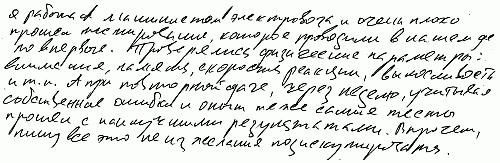 я работаю машинистом электровоза, и очень плохо
прошел тестирование, которое проводили в нашем де
по впервые. Проверялись физические параметры:
внимания, память, скорость реакции, выносливость
и т.п. А при повторной сдаче, через неделю, учитывая
собственные ошибки и опыт те же самые тесты
прошел с наилучшими результатами. Впрочем,
пишу все это не из желания подискутировать.